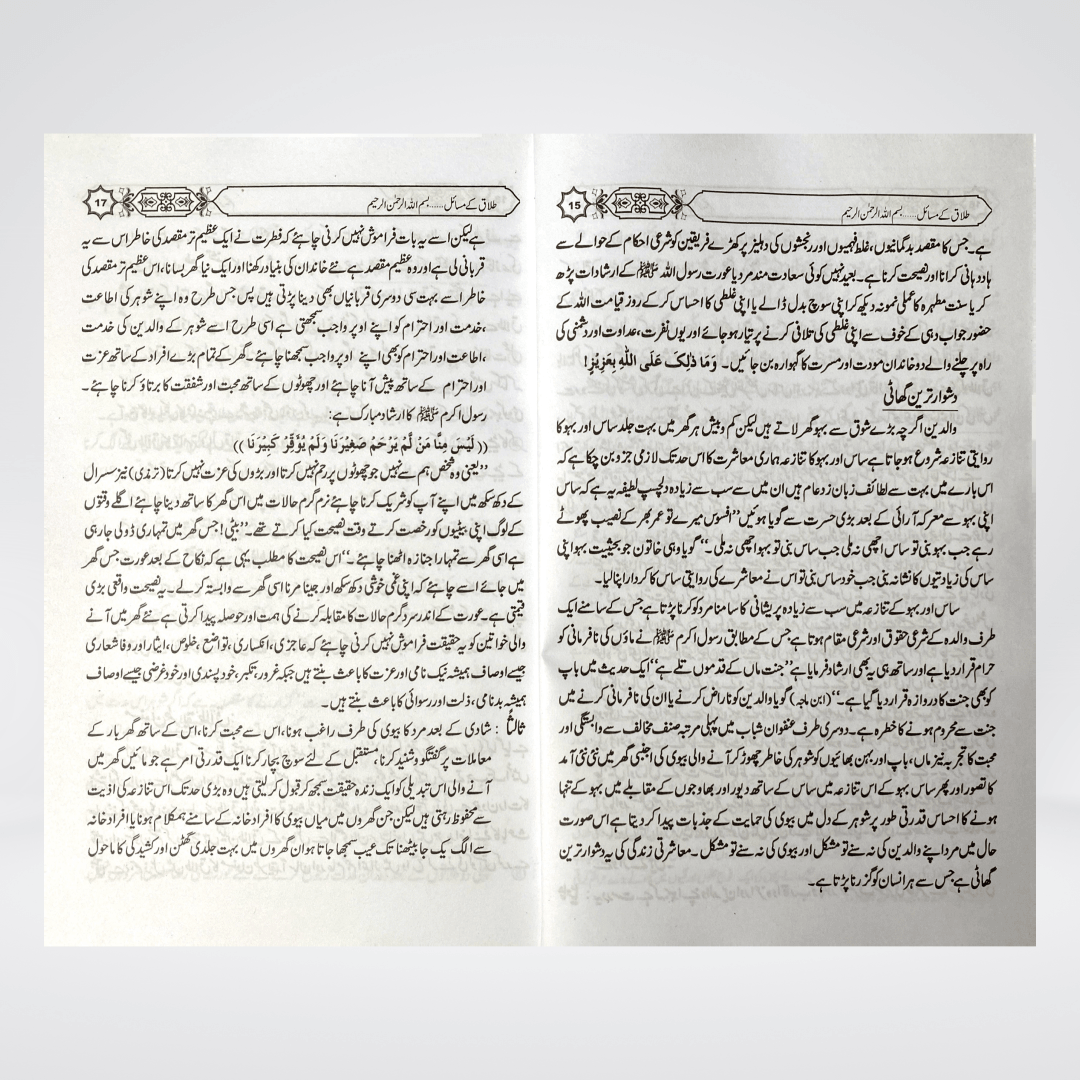 طلاق کے مسائل......بسم اللہ الرحمٰن الرحیم
15
ہے۔ جس کا مقصد بدگمانیوں، غلط فہمیوں اور رنجشوں کی دہلیز پر کھڑے فریقین کو شرعی احکام کے حوالے سے
یاد دہانی کرانا اور نصیحت کرنا ہے۔ بعید نہیں کوئی سعادت مند مرد یا عورت رسول اللہ ﷺ کے ارشادات پڑھ
کر یا سنت مطہرہ کا عملی نمونہ دیکھ کر اپنی سوچ بدل ڈالے یا اپنی غلطی کا احساس کر کے روز قیامت اللہ کے
حضور جواب دہی کے خوف سے اپنی غلطی کی تلافی کرنے پر تیار ہو جائے اور یوں نفرت، عداوت اور دشمنی کی
راہ پر چلنے والے دو خاندان مودت اور مسرت کا گہوارہ بن جائیں۔ وَمَا ذٰلِکَ عَلَی اللّٰہِ بِعَزِیْزٍ!
دشوار ترین گھاٹی
والدین اگرچہ بڑے شوق سے بہو گھر لاتے ہیں لیکن کم و بیش ہر گھر میں بہت جلد ساس اور بہو کا
روایتی تنازعہ شروع ہو جاتا ہے ساس اور بہو کا تنازعہ ہماری معاشرت کا اس حد تک لازمی جزو بن چکا ہے کہ
اس بارے میں بہت سے لطائف زبان زد عام ہیں ان میں سے سب سے زیادہ دلچسپ لطیفہ یہ ہے کہ ساس
اپنی بہو سے معرکہ آرائی کے بعد بڑی حسرت سے گویا ہوئیں ’’افسوس میرے تو عمر بھر کے نصیب پھوٹے
رہے جب بہو بنی تو ساس اچھی نہ ملی جب ساس بنی تو بہو اچھی نہ ملی۔‘‘ گویا وہی خاتون جو بحیثیت بہو اپنی
ساس کی زیادتیوں کا نشانہ بنی جب خود ساس بنی تو اس نے معاشرے کی روایتی ساس کا کردار اپنا لیا۔
ساس اور بہو کے تنازعہ میں سب سے زیادہ پریشانی کا سامنا مرد کو کرنا پڑتا ہے جس کے سامنے ایک
طرف والدہ کے شرعی حقوق اور شرعی مقام ہوتا ہے جس کے مطابق رسول اکرم ﷺ نے ماؤں کی نافرمانی کو
حرام قرار دیا ہے اور ساتھ ہی یہ بھی ارشاد فرمایا ہے ’’جنت ماں کے قدموں تلے ہے‘‘ ایک حدیث میں باپ
کو بھی جنت کا دروازہ قرار دیا گیا ہے۔‘‘ (ابن ماجہ) گویا والدین کو ناراض کرنے یا ان کی نافرمانی کرنے میں
جنت سے محروم ہونے کا خطرہ ہے۔ دوسری طرف عنفوان شباب میں پہلی مرتبہ صنف مخالف سے وابستگی اور
محبت کا تجربہ نیز ماں، باپ اور بہن بھائیوں کو شوہر کی خاطر چھوڑ کر آنے والی بیوی کی اجنبی گھر میں نئی نئی آمد
کا تصور اور پھر ساس بہو کے اس تنازعہ میں ساس کے ساتھ دیور اور بھاوجوں کے مقابلے میں بہو کے تنہا
ہونے کا احساس قدرتی طور پر شوہر کے دل میں بیوی کی حمایت کے جذبات پیدا کر دیتا ہے اس صورت
حال میں مرد اپنے والدین کی نہ سنے تو مشکل اور بیوی کی نہ سنے تو مشکل۔ معاشرتی زندگی کی یہ دشوار ترین
گھاٹی ہے جس سے ہر انسان کو گزرنا پڑتا ہے۔
طلاق کے مسائل......بسم اللہ الرحمٰن الرحیم
17
ہے لیکن اسے یہ بات فراموش نہیں کرنی چاہئے کہ فطرت نے ایک عظیم تر مقصد کی خاطر اس سے یہ
قربانی لی ہے اور وہ عظیم مقصد ہے نئے خاندان کی بنیاد رکھنا اور ایک نیا گھر بسانا، اس عظیم تر مقصد کی
خاطر اسے بہت سی دوسری قربانیاں بھی دینا پڑتی ہیں پس جس طرح وہ اپنے شوہر کی اطاعت
،خدمت اور احترام کو اپنے اوپر واجب سمجھتی ہے اسی طرح اسے شوہر کے والدین کی خدمت
،اطاعت اور احترام کو بھی اپنے اوپر واجب سمجھنا چاہئے۔ گھر کے تمام بڑے افراد کے ساتھ عزت
اور احترام کے ساتھ پیش آنا چاہئے اور چھوٹوں کے ساتھ محبت اور شفقت کا برتاؤ کرنا چاہئے۔
رسول اکرم ﷺ کا ارشاد مبارک ہے:
((لَیْسَ مِنَّا مَنْ لَّمْ یَرْحَمْ صَغِیْرَنَا وَلَمْ یُوَقِّرْ کَبِیْرَنَا))
’’یعنی وہ شخص ہم سے نہیں جو چھوٹوں پر رحم نہیں کرتا اور بڑوں کی عزت نہیں کرتا (ترمذی) نیز سسرال
کے دکھ سکھ میں اپنے آپ کو شریک کرنا چاہئے نرم گرم حالات میں اس گھر کا ساتھ دینا چاہئے اگلے وقتوں
کے لوگ اپنی بیٹیوں کو رخصت کرتے وقت نصیحت کیا کرتے تھے۔’’بیٹی! جس گھر میں تمہاری ڈولی جا رہی
ہے اسی گھر سے تمہارا جنازہ اٹھنا چاہئے۔‘‘ اس نصیحت کا مطلب یہی ہے کہ نکاح کے بعد عورت جس گھر
میں جائے اسے چاہئے کہ اپنی غمی خوشی دکھ سکھ اور جینا مرنا اسی گھر سے وابستہ کر لے۔ یہ نصیحت واقعی بڑی
قیمتی ہے۔ عورت کے اندر سرد گرم حالات کا مقابلہ کرنے کی ہمت اور حوصلہ پیدا کرتی ہے نئے گھر میں آنے
والی خواتین کو یہ حقیقت فراموش نہیں کرنی چاہئے کہ عاجزی، انکساری، تواضع، خلوص، ایثار اور وفا شعاری
جیسے اوصاف ہمیشہ نیک نامی اور عزت کا باعث بنتے ہیں جبکہ غرور، تکبر، خود پسندی اور خود غرضی جیسے اوصاف
ہمیشہ بدنامی، ذلت اور رسوائی کا باعث بنتے ہیں۔
ثالثاً : شادی کے بعد مرد کا بیوی کی طرف راغب ہونا، اس سے محبت کرنا، اس کے ساتھ گھر بار کے
معاملات پر گفتگو و شنید کرنا، مستقبل کے لئے سوچ بچار کرنا ایک قدرتی امر ہے جو مائیں گھر میں
آنے والی اس تبدیلی کو ایک زندہ حقیقت سمجھ کر قبول کر لیتی ہیں وہ بڑی حد تک اس تنازعہ کی اذیت
سے محفوظ رہتی ہیں لیکن جن گھروں میں میاں بیوی کا افراد خانہ کے سامنے ہمکلام ہونا یا افراد خانہ
سے الگ یک جا بیٹھنا تک عیب سمجھا جاتا ہو ان گھروں میں بہت جلدی گھٹن اور کشیدگی کا ماحول